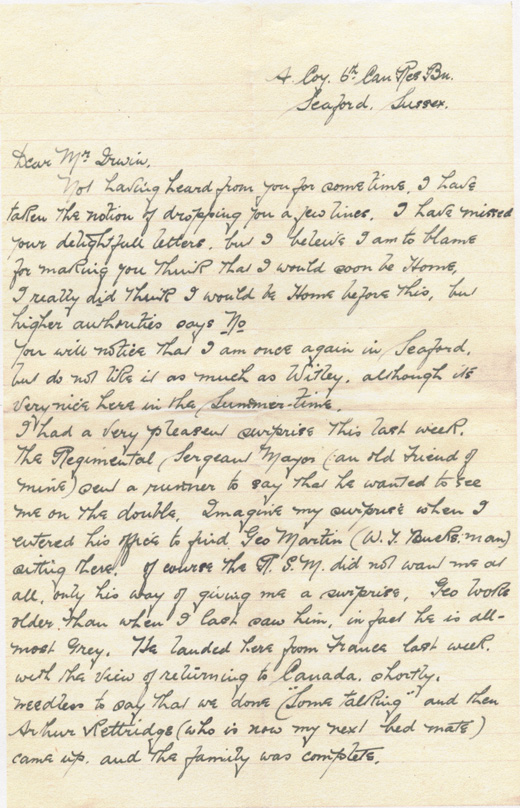 A Coy. 6th Can Res Bn.
Seaford. Sussex.
Dear Mrs Irwin.
Not having heard from you for some time, I have
taken the notion of dropping you a few lines. I have missed
your delightfull letters. but I beleive I am to blame
for making you think that I would soon be Home.
I really did think I would be Home before this, but
higher authorities says No
you will notice that I am once again in Seaford.
but do not like it as much as Witley. although its
very nice here in the Summer-time.
I had a very pleasent surprise this last week.
the Regimental Sergeant Mayor (an old friend of
mine) sent a runner to say that he wanted to see
me on the double. Imagine my surprise when I
entered his office to find Geo Martin (W. J. Bucks. man)
sitting there. of course the R. S. M. did not want me at
all, only his way of giving me a surprise. Geo looks
older. than when I last saw him, in fact he is all-
most Grey. He landed here from France last week.
with the view of returning to Canada. shortly.
needless to say that we done "Some talking" and then
Arthur Kettridge (who is now my next bed mate)
came up. and the family was complete.